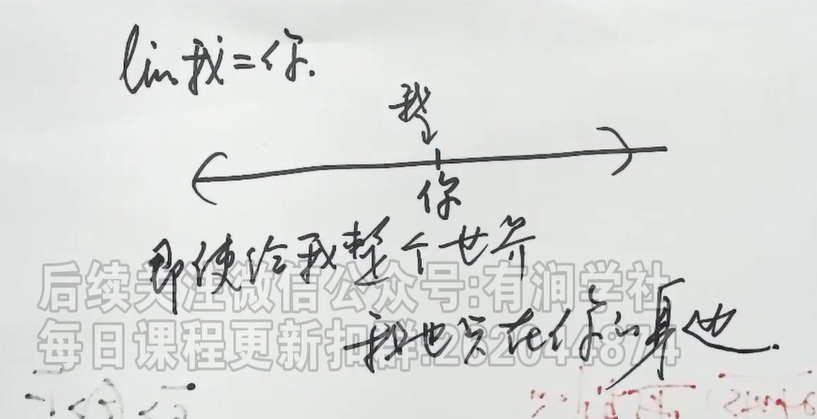 lim 我=你.
我
你
即使给我整个世界
我也只在你的身边.
后续关注微信公众号:有润学社
每日课程更新扣群:2820448744